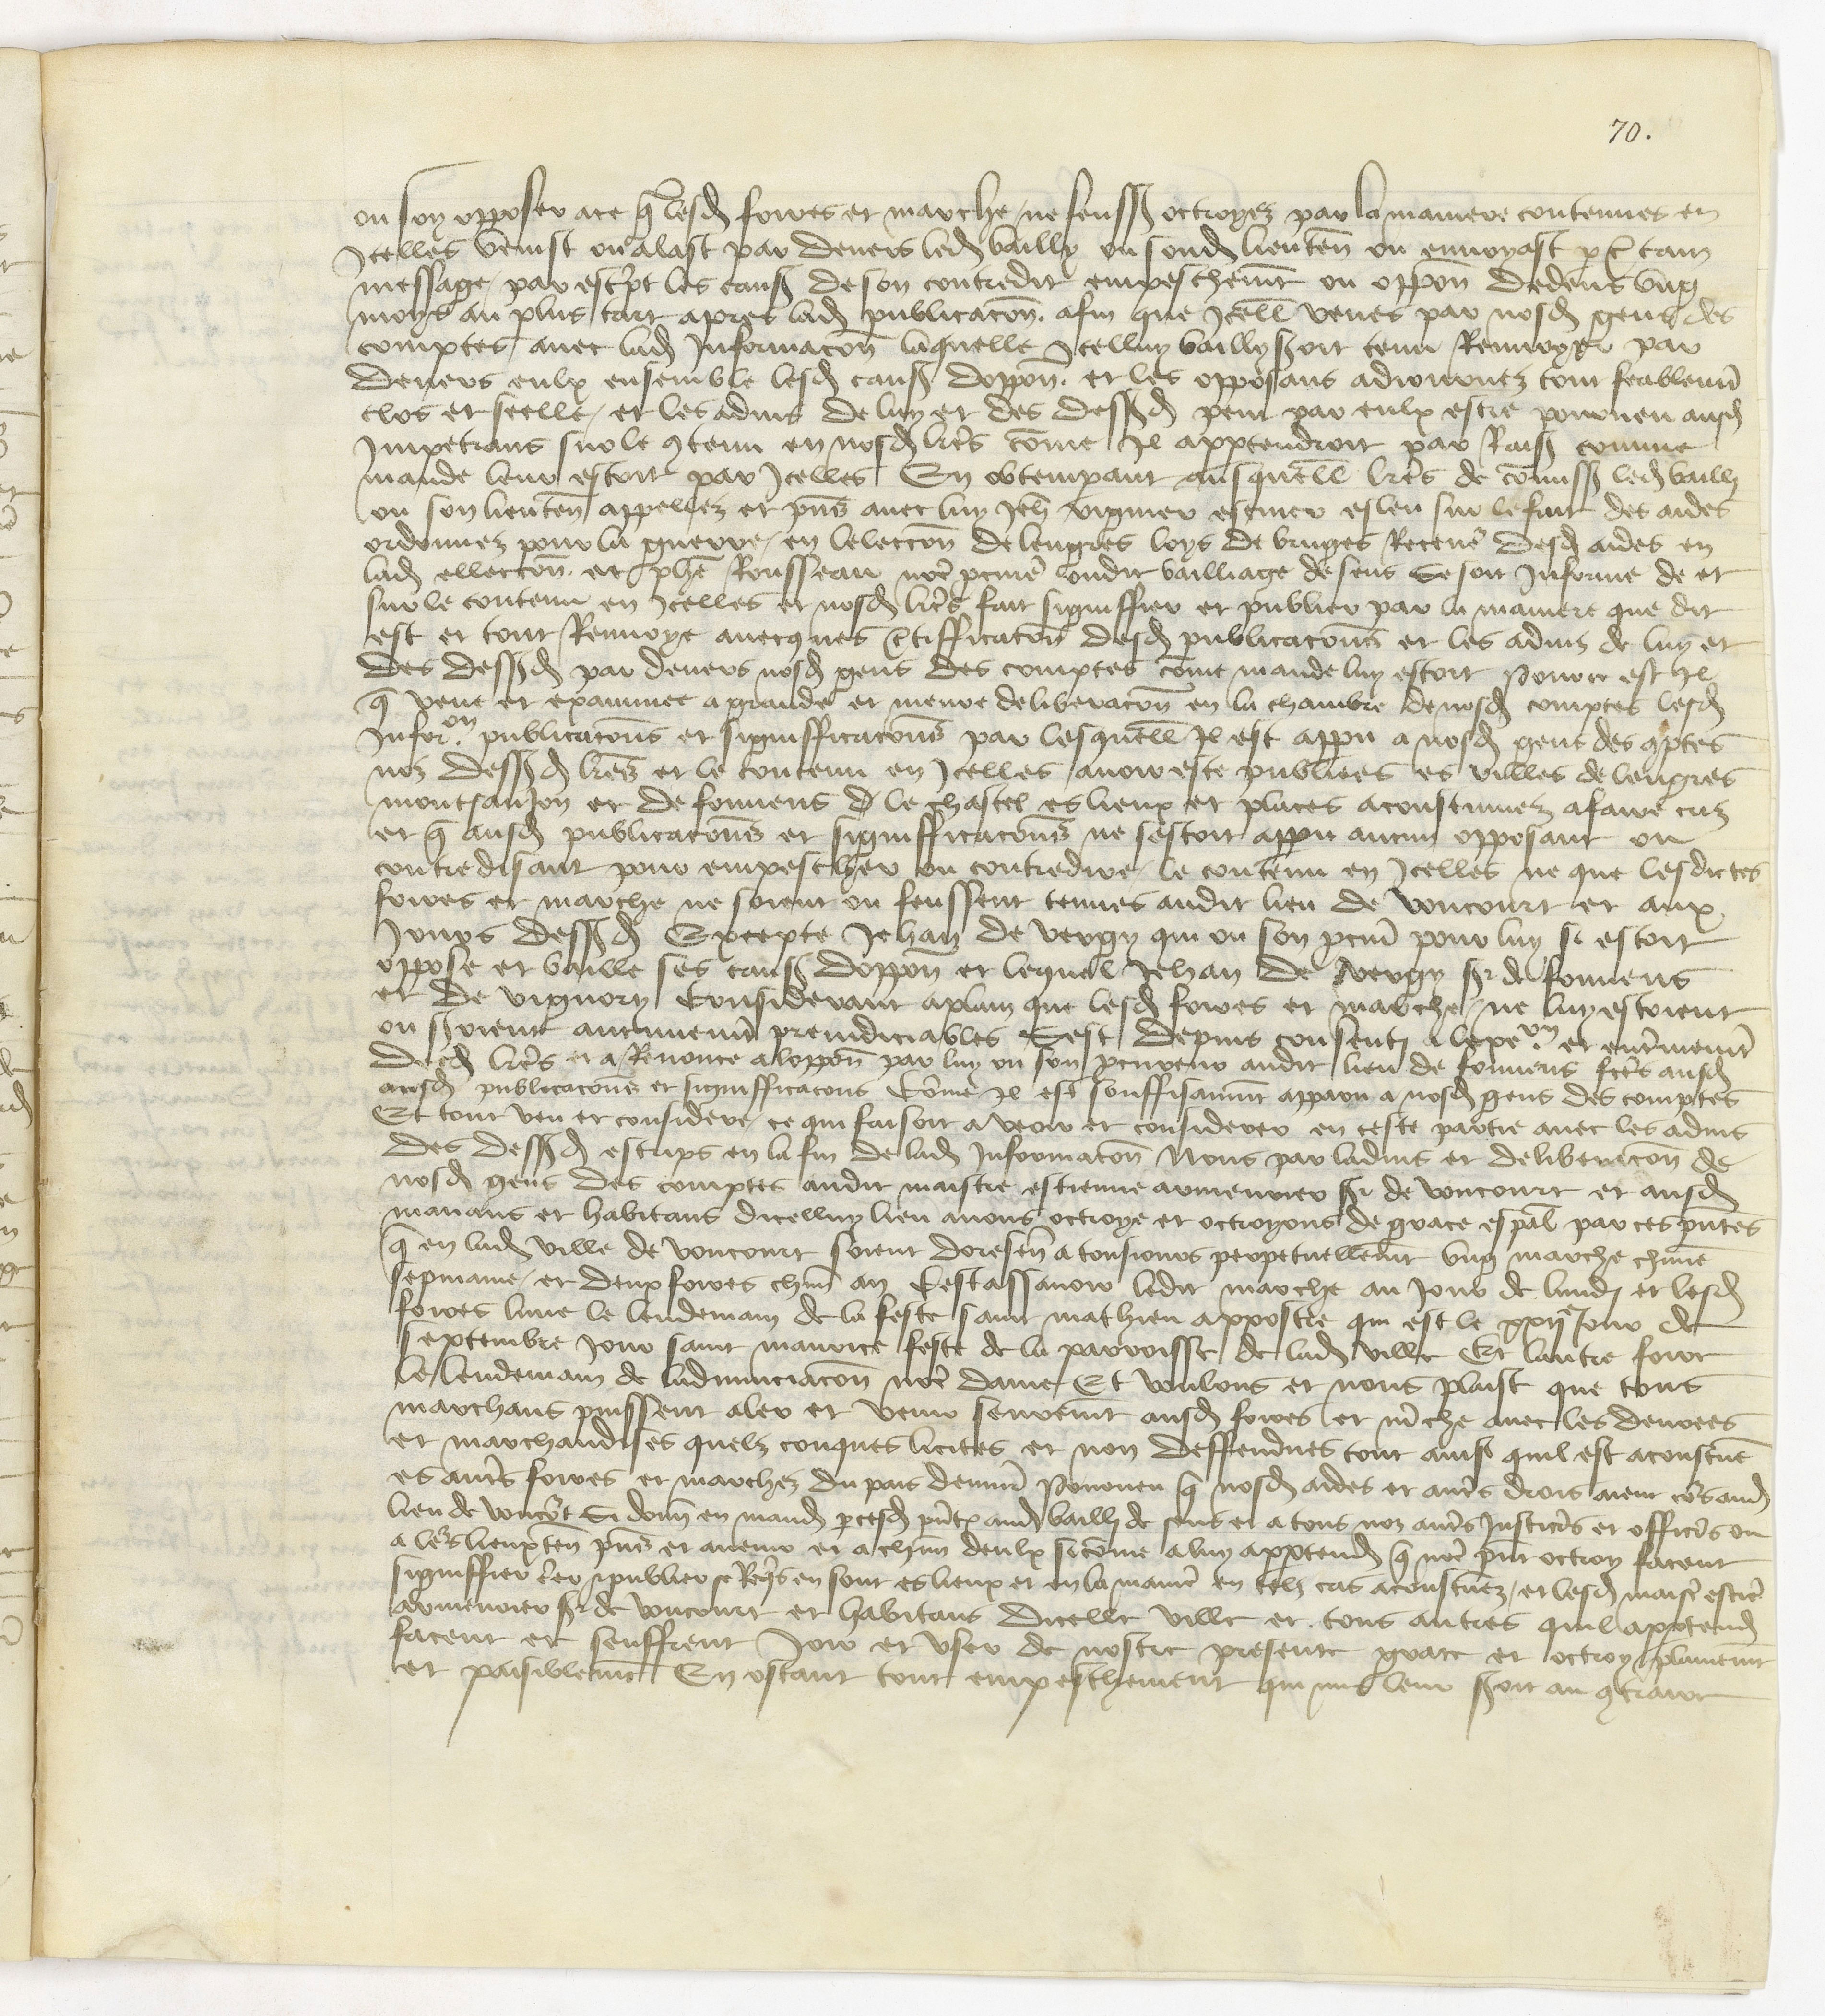 70.
ou soy opposer a ce q̃ lesd foires et marche ne feussẽt octroyez par la maniere contenues en
Icelles venist ou alast par devers led bailly ou sond lieuteñ ou envoyast p c̃tain
message par escript les causes de son contredit empeschemt ou oppoñ dedens ung
moys au plus tart apres lad publicacoñ. afin que Icelles veues par nosd gens des
comptes avec lad Informacoñ laquelle Icelluy bailly seroit tenu Renvoyer par
devers eulx ensemble lesd causes doppoñ. et les opposans adiournez tout feablemt
clos et seelle et les advis de luy et des dessusd peut par eulx estre pourveu ausd
Impetrans sur le contenu en nosd lres cõme Il appartendroit par Raison comme
mande leur estoit par Icelles En obtempant ausquelles lres de cõmission led bailly
ou son lieuteñ appellez et pñs avec luy Jeh viguier escuier esleu sur le fait des aides
ordonnez pour la guerre en lelectoñ de lengres loys de bruges Receveur desd aides en
lad ellectoñ. et phẽ Rousseau nõe procureur oudit bailliage de sens Se soit Informe de et
sur le contenu en Icelles et nosd lres fait signiffier et publier par la maniere que dit
est et tout Renvoye avecques c̃tifficacoñ desd publicacoñs et les advis de luy et
des dessusd par devers nosd gens des comptes cõme mande luy estoit Pource est Il
q̃ veue et examinee a grande et meure deliberacoñ en la chambre de nosd comptes lesd
Infor.on publicacoñs et signifficacoñs par lesquelles Il est appu a nosd gens des 9ptes
noz dessusd lres et le contenu en Icelles avoir este publiees es villes de lengres
montsanjon et de fouvens le chastel es lieux et places acoustumez a faire criz
et q̃ ausd publicacoñs et signifficacoñs ne sestoit appu aucun opposant ou
contredisant pour empescher ou contredire le contenu en Icelles ne que lesdictes
foires et marche ne soient ou feussent tenues audit lieu de voncourt et aux
Jours dessusd Excepte Jehan de vergy qui ou son procureur pour luy se estoit
oppose et baille ses causes doppoñ et lequel Jehan de vergy sr de fouvens
et de vignory Considerant a plain que lesd foires et marche ne luy estoient
ou seroient aucunemt preiudiciables Sest depuis consenti a lexe.on et enterinemt
desd lres et a Renonce a loppoñ par luy ou son procureur audit lieu de fouvens fctes ausd
ausd publicacoñs et signifficacoñs Cõme Il est souffisaumt apparu a nosd gens des comptes
Et tout veu et considere ce qui faisoit a veoir et considerer en ceste partie avec les advis
des dessusd escrips en la fin de lad Informacoñ Nous par ladvis et deliberacoñ de
nosd gens des comptes audit maistre estienne armenier sr de voncourt et ausd
manans et habitans dicelluy lieu avons octroye et octroyons de grace espãl par ces pñtes
q̃ en lad ville de voncourt soient doresen̄ a tousiours perpetuellemt ung marche chũne
sepmaine et deux foires chũn an Cestassavoir ledit marche au Jour de lundi et lesd
foires lune le lendemain de la feste saint mathieu appostre qui est le xxije Jour de
septembre Jour saint maurice feste de la parroisse de lad ville Et lautre foire
le lendemain de ladnunciacoñ nr̃e dame Et voulons et nous plaist que tous
marchans puissent aler et venir seuremt ausd foires et m̃che avec les denrees
et marchandises quelz conques licites et non deffendues tout ainsi quil est acoustume
es autres foires et marchez du pais denviron Pourveu q̃ nosd aides et autres drois aient cours aud
lieu de voncourt Si donñ en mand p cesd pñtes aud bailly de sens et a tous noz autres Justiciers et officiers ou
a leurs lieuxteñ pñs et avenir et a chũn deulx si cõme a luy appartend q̃ nr̃e pñt octroy facent
signiffier crier publier se Requis en sont es lieux et en la maniere en telz cas acoustumez et lesd maistre estienne
armenier sr de voncourt et habitans dicelle ville et tous autres quil appartend
facent et seuffrent Joir et user de nostre presente grace et octroy plainemt
et paisiblemt En ostant tout empeschement qui mis leur seroit au 9traire